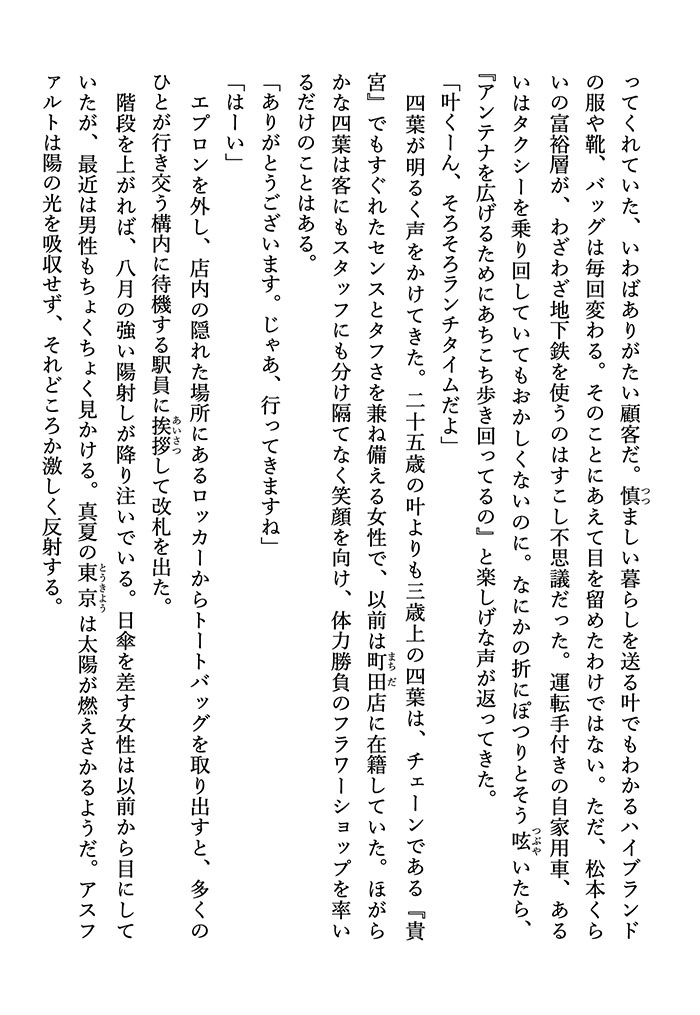 ってくれていた、いわばありがたい顧客だ。慎ましい暮らしを送る叶でもわかるハイブランド
の服や靴、バッグは毎回変わる。そのことにあえて目を留めたわけではない。ただ、松本くら
いの富裕層が、わざわざ地下鉄を使うのはすこし不思議だった。運転手付きの自家用車、ある
いはタクシーを乗り回していてもおかしくないのに。なにかの折にぽつりとそう呟いたら、
『アンテナを広げるためにあちこち歩き回ってるの』と楽しげな声が返ってきた。
「叶くーん、そろそろランチタイムだよ」
四葉が明るく声をかけてきた。二十五歳の叶よりも三歳上の四葉は、チェーンである『貴
宮』でもすぐれたセンスとタフさを兼ね備える女性で、以前は町田店に在籍していた。ほがら
かな四葉は客にもスタッフにも分け隔てなく笑顔を向け、体力勝負のフラワーショップを率い
るだけのことはある。
「ありがとうございます。じゃあ、行ってきますね」
「はーい」
エプロンを外し、店内の隠れた場所にあるロッカーからトートバッグを取り出すと、多くの
ひとが行き交う構内に待機する駅員に挨拶して改札を出た。
階段を上がれば、八月の強い陽射しが降り注いでいる。日傘を差す女性は以前から目にして
いたが、最近は男性もちょくちょく見かける。真夏の東京は太陽が燃えさかるようだ。アスフ
ァルトは陽の光を吸収せず、それどころか激しく反射する。